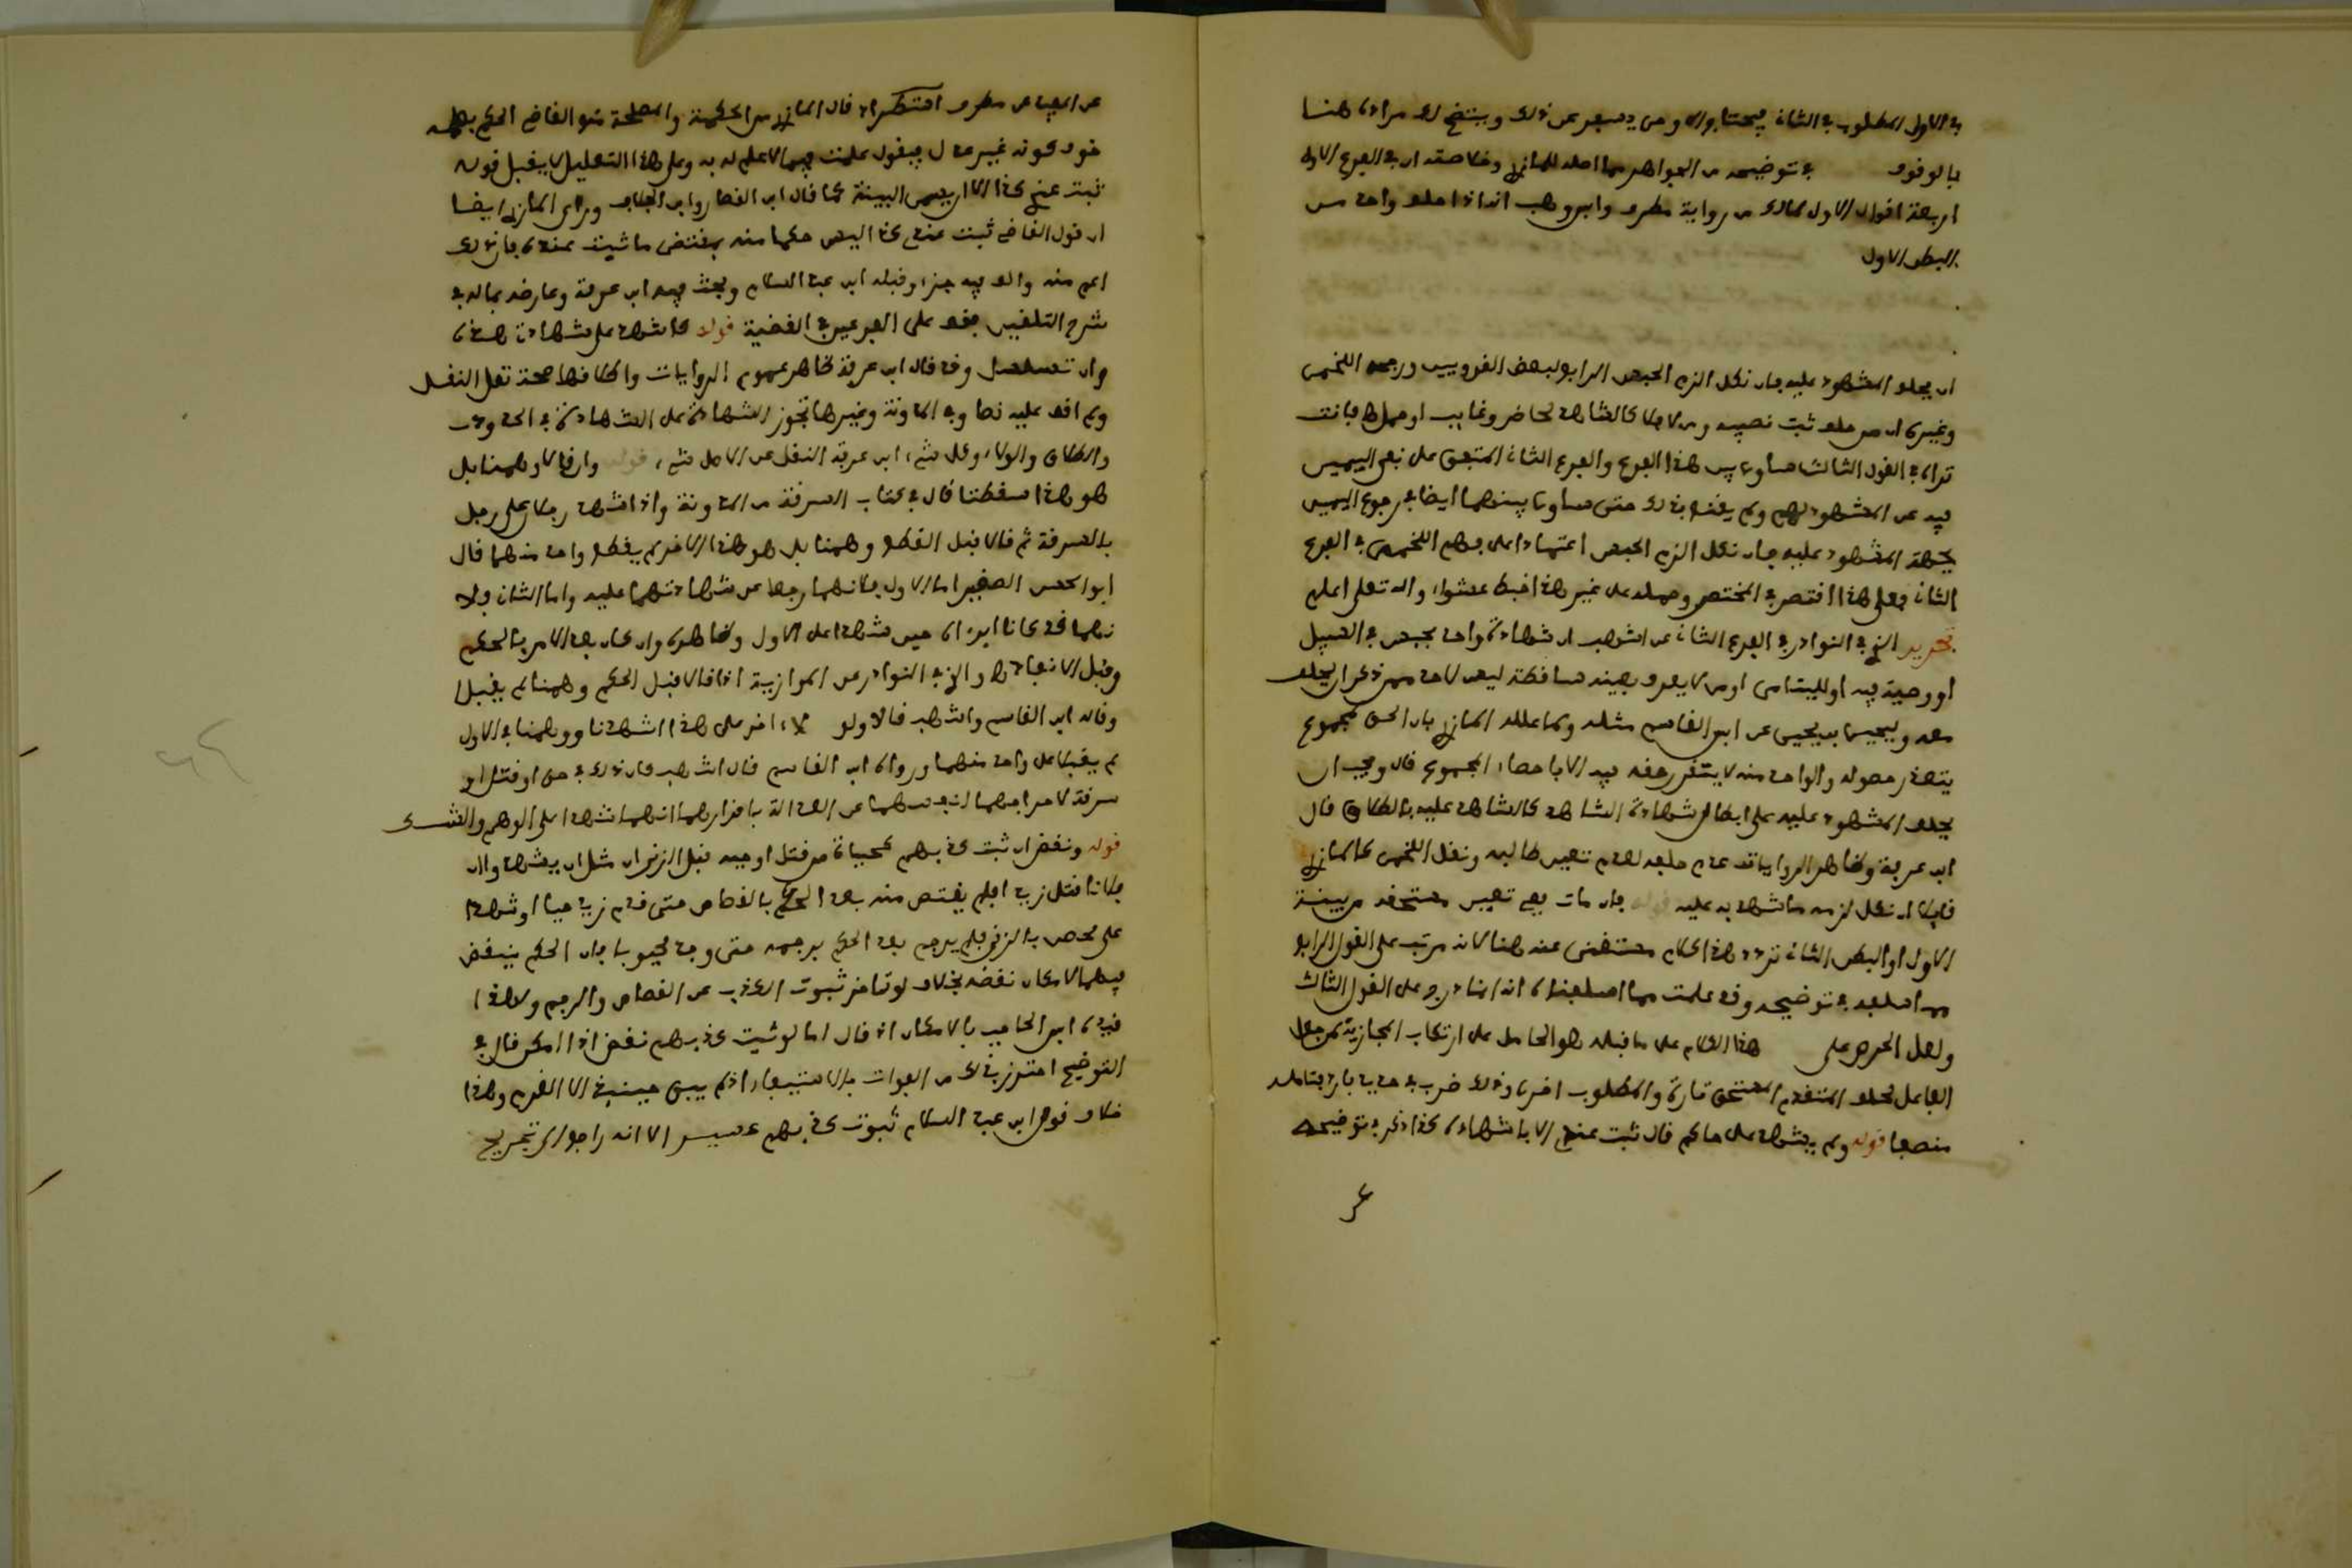 في الاول المطلوب في الثاني فيحتاج الى ومن يعبر عن ذلك ويتضح لك مراده هنا
بالوقوف في توضيحه من الجواهر مما اصله للمازري وخلاصته ان في الفرع الاول
اربعة اقوال الاول لمالك من رواية مطرف وابن وهب انه اذا حلف واحد من
البطن الاول
ان يحلف المشهود عليه فان نكل الزم الحبس الرابع لبعض القرويين ورجحه اللخمي
وغيره ان من حلف ثبت نصيبه ومن لا فلا كالشاهد لحاضر وغايب او حمل فانت
تراه في القول الثالث ساوى بين هذا الفرع والفرع الثاني المتفق على نفي اليمين
فيه عن المشهود لهم ولم يقنع بذلك حتى ساوى بينهما ايضا في رجوع اليمين
لجهة المشهود عليه فان نكل الزم الحبس اعتمادا على فهم اللخمي في الفرع
الثاني فعلى هذا اقتصر في المختصر وحمله على غير هذا خبط عشواء والله تعلى اعلم
تحرير الذي في النوادر في الفرع الثاني عن اشهب ان شهادة واحد بحبس في السبيل
او وصية فيه او لليتامى او من لا يعرف بعينه ساقطة ليس لاحد ممن ذكر ان يحلف
معه وليحيى بن يحيى عن ابن القاسم مثله وكما علله المازري بان الحق لمجموع
يتعذر حصوله والواحد منه لا يتقرر حقه فيه الا باحصاء المجموع قال ويجب ان
يحلف المشهود عليه على ابطال شهادة الشاهد كالشاهد عليه بالطلاق قال
ابن عرفة وظاهر الروايات عدم حلفه لعدم تعيين طالبه ونقل اللخمي كالمازري
قايلا ان نكل لزمه ما شهد به عليه قوله فان مات ففي تعيين مستحقه من بقية
الاول او البطن الثاني تردد هذا الكلام مستغنى عنه هنا لانه مرتب على القول الرابع
مما اسلفه في توضيحه وقد علمت مما اسلفناه انه انما درج على القول الثالث
ولعل الحرص على هذا الكلام على ما قبله هو الحامل على ارتكاب المجازية من جعل
الفاعل لحلف المتقدم المستحق تارة والمطلوب اخرى وذلك ضرب في حديد بارد فتامله
منصفا قوله ولم يشهد على حاكم قال ثبت عندي الا باشهاده كذا ذكر في توضيحه
عن
الجواهر عن مطرف استظهرا قال المازري من الحكمة والمصلحة منع القاضي الحكم بعلمه
خوف كونه غير عدل فيقول علمت فيما لا علم له به وعلى هذا التعليل لا يقبل قوله
ثبت عندي كذا الا ان يسمي البينة كما قال ابن القصار وابن الجلاب ورءا المازري ايضا
ان قول القاضي ثبت عندي كذا ليس حكما منه بمقتضى ما ثبت عنده فان ذلك
اعم منه والف فيه جزءا وقبله ابن عبد السلام وبحث فيه ابن عرفة وعارضه بما له في
شرح التلقين فقف على الفرعين في القضية قوله كاشهد على شهادتي هذه
وان تسلسل وقد قال ابن عرفة ظاهر عموم الروايات واطلاقها صحة نقل النقل
ولم اقف عليه نصا وفي المدونة وغيرها تجوز الشهادة على الشهادة في الحدود
والطلاق والولاء وكل شيء ابن عرفة النقل عن الاصل شيء قوله وان قالا وهمنا بل
هو هذا سقطتا قال في كتاب السرقة من المدونة واذا شهد رجلان على رجل
بالسرقة ثم قالا قبل القطع وهمنا بل هو هذا الاخر لم يقطع واحد منهما قال
ابو الحسن الصغير اما الاول فلانهما رجعا عن شهادتهما عليه واما الثاني فلا
نهما قد كانا ابرءاه حين شهدا على الاول وظاهره وان كان بعد الامر بالحكم
وقبل الانفاذ والذي في النوادر عن الموازية اذا قالا قبل الحكم وهمنا لم يقبلا
وقاله ابن القاسم واشهب قالا ولو جاءا باخر على هذا شهدنا ووهمنا في الاول
لم يقبلا على واحد منهما ورواه ابن القاسم قال اشهب كان ذلك في حق او قتل او
سرقة لاخراجهما لنفسهما عن العدالة باقرارهما انهما شهدا على الوهم والشك
قوله ونقض ان ثبت كذبهم كحياة من قتل او جبه قبل الزنى ان مثل ان يشهدا ان
فلانا قتل زيدا فلم يقتص منه بعد الحكم بالقصاص حتى قدم زيد حيا او شهدا
على محصن بالزنى فلم يرجم بعد الحكم برجمه حتى وجد مجبوبا فان الحكم ينقض
فيهما لامكان نقضه بخلاف لو تاخر ثبوت الكذب عن القصاص والرجم ولهذا
قيده ابن الحاجب بالامكان اذ قال اما لو ثبت كذبهم نقض اذا امكن قال في
التوضيح احترز بذلك من الفوات بالاستيفاء اذ لم يبق حينئذ الا الغرم وهذا
خلاف قول ابن عبد السلام ثبوت كذبهم عسير الا انه راجع الى تجريح